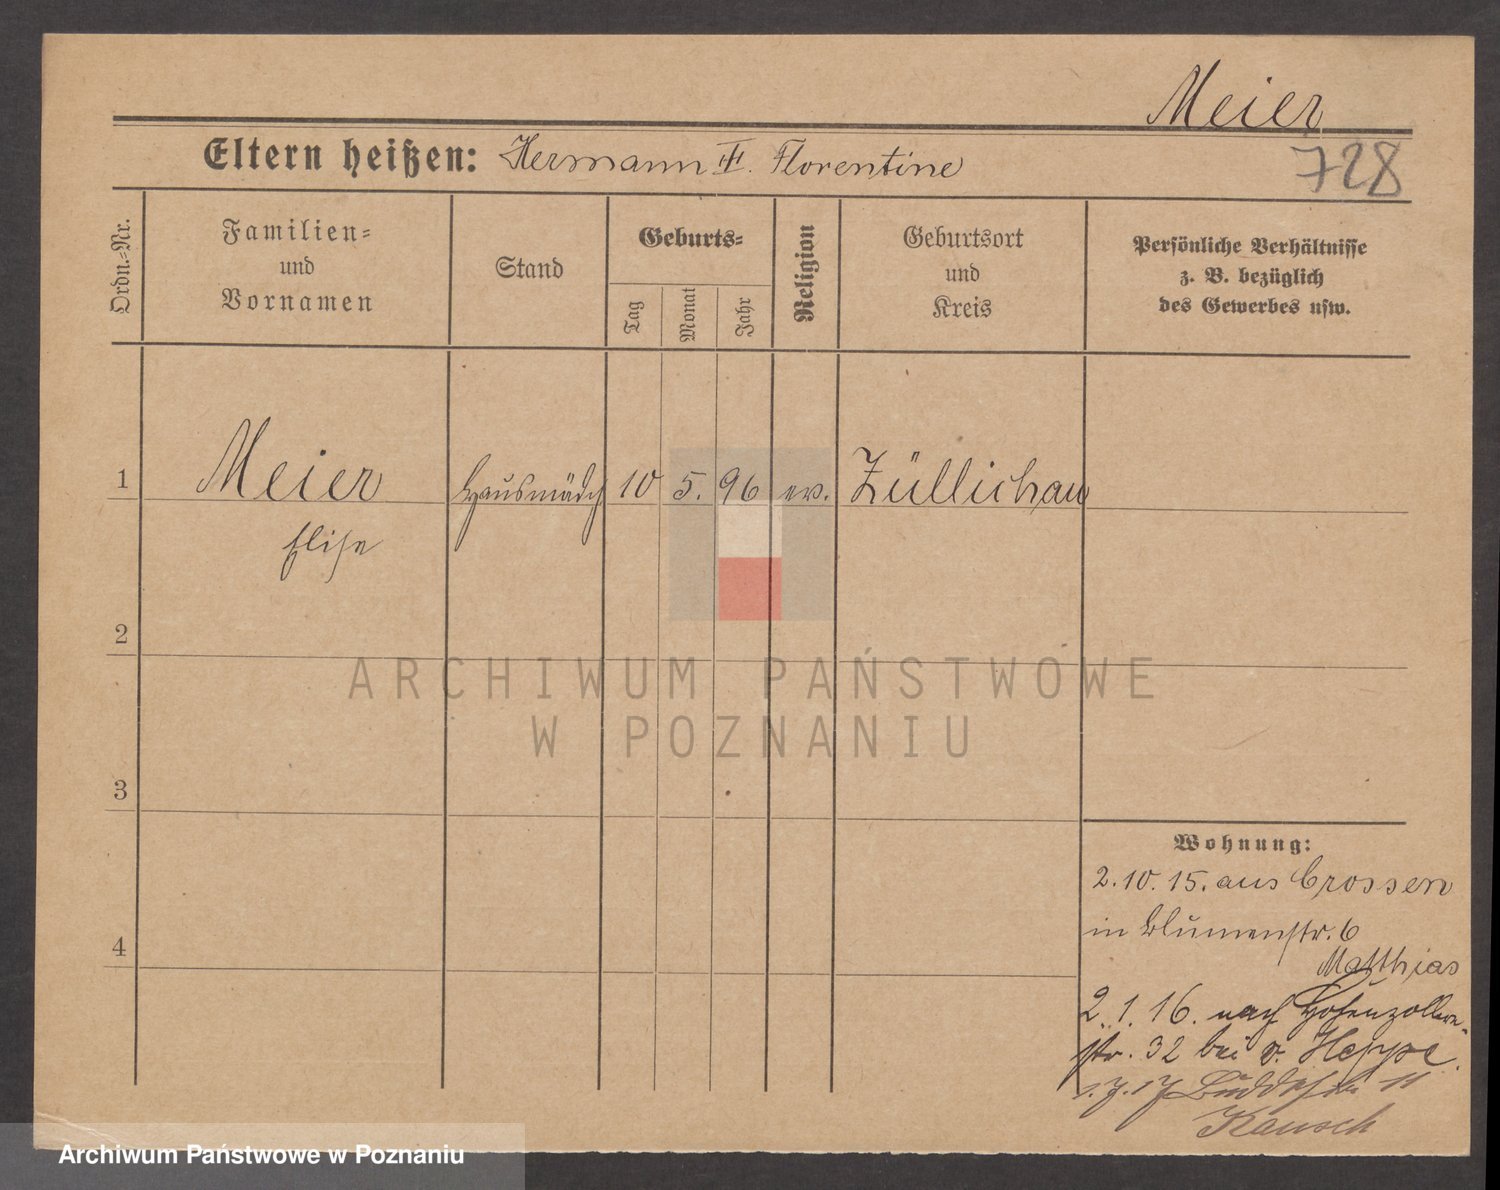 Meier
Eltern heißen: Hermann Florentine
728
Ordn.-Nr.
Familien-
und
Vornamen
Stand
Geburts-
Tag
Monat
Jahr
Religion
Geburtsort
und
Kreis
Persönliche Verhältnisse
z. B. bezüglich
des Gewerbes usw.
1 Meier Hausmädch 10 5. 96 ev. Züllichau
Elise
2
3
4
ARCHIWUM PAŃSTWOWE
W POZNANIU
Wohnung:
2.10.15. aus Crossen
in Blumenstr. 6
Matthias
2.1.16. nach Hohenzollern-
str. 32 bei v. Heppe.
1.7.17 11
Kausch
Archiwum Państwowe w Poznaniu